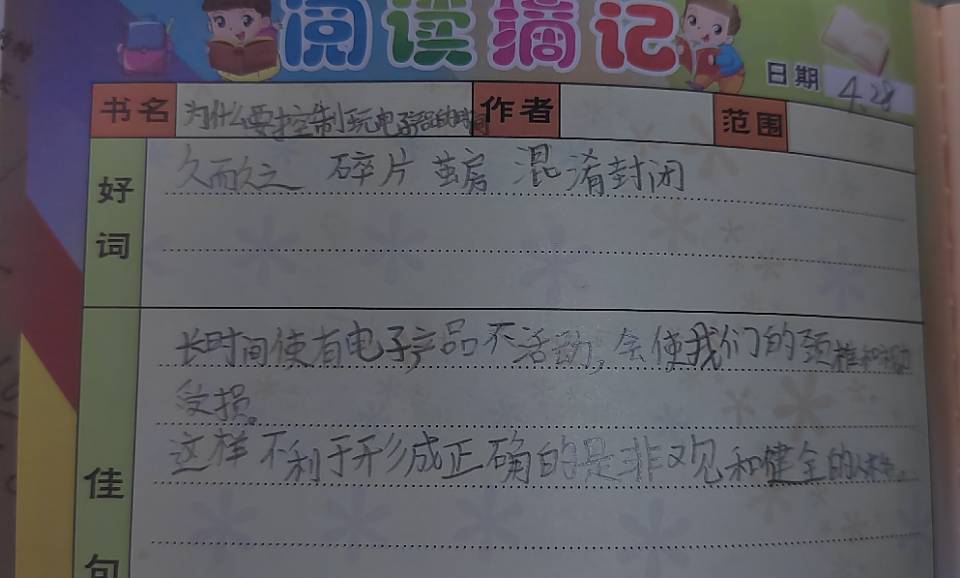 阅读摘记
日期 4.28
书名 为什么要控制玩电子产品的时间 作者 范围
好词
久而久之 碎片 蜂房 混淆 封闭
佳句
长时间使有电子产品不活动,会使我们的颈椎和视力
受损。
这样不利于形成正确的是非观和健全的人格。